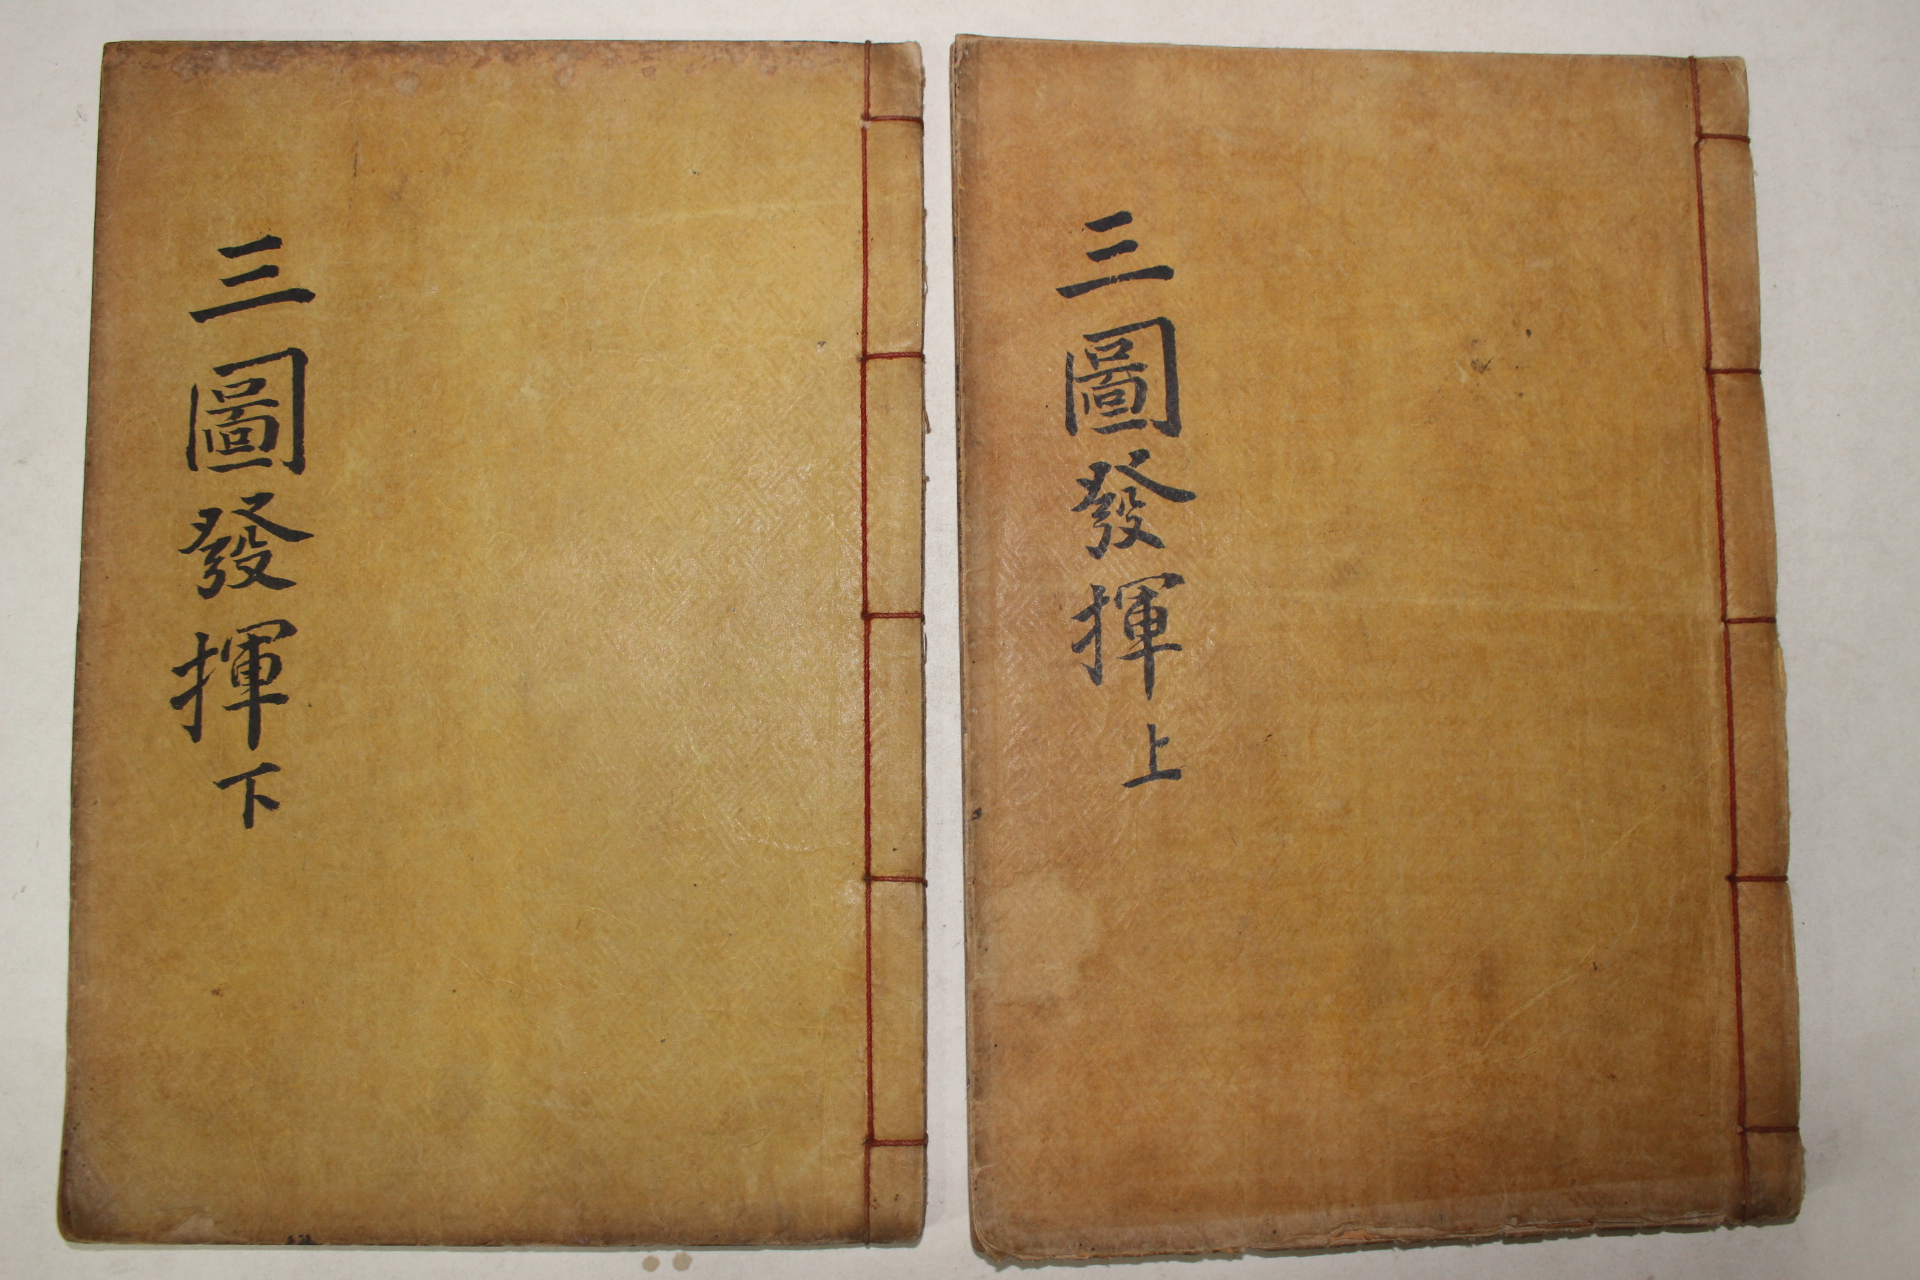 三圖發揮上
三圖發揮下